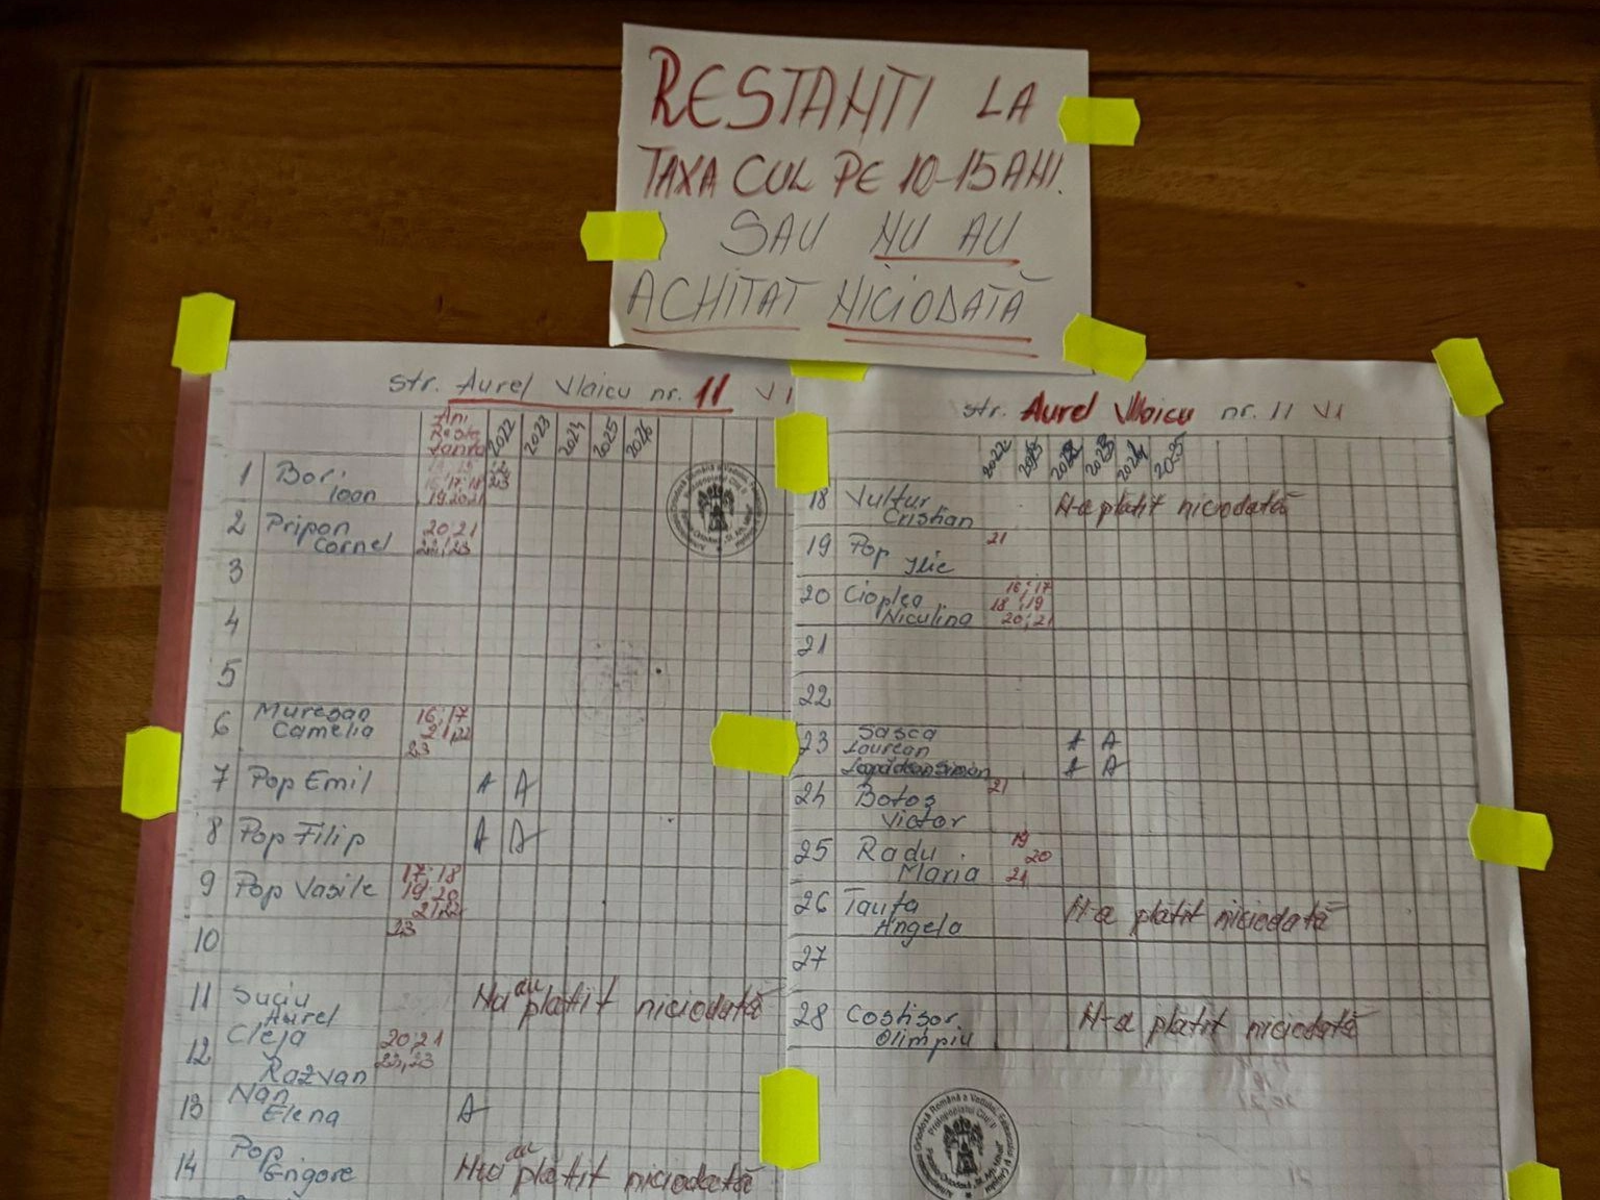 RESTANTI LA
TAXA CUL PE 10-15 ANI.
SAU NU AU
ACHITAT NICIODATĂ
str. Aurel Vlaicu nr. 11 V1
Ani
2022 2023 2024 2025 2026
1 Bori
Ioan
17 18
19 20 21
23
2 Pripon
Cornel
20, 21
22, 23
3
4
5
6 Muresan
Camelia
16, 17
21, 22
23
7 Pop Emil A A
8 Pop Filip A A
9 Pop Vasile
17 18
19 20
21, 22
23
10
11 Suciu
Aurel
N-au platit niciodată
12 Cleja
Razvan
20, 21
22, 23
13 Nan
Elena
A
14 Pop
Grigore
N-au platit niciodată
str. Aurel Vlaicu nr. 11 V1
2022 2023 2024 2025
18 Vultur
Cristian
N-a platit niciodată
19 Pop
Ilie
21
20 Cioplea
Niculina
16, 17
18, 19
20, 21
21
22
23 Sasca
Laurean
A A
A A
24 Botos
Victor
21
25 Radu
Maria
19
20
21
26 Tauta
Angela
N-a plătit niciodată
27
28 Costisor
Olimpiu
N-a platit niciodată